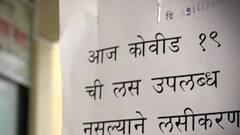 दि
आज कोवीड १९
ची लस उपलब्ध
नसल्याने लसीकरण